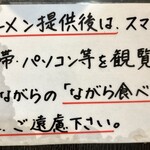 ーメン提供後は、スマ
帯・パソコン等を観覧
ながらの「ながら食べ
、ご遠慮下さい。